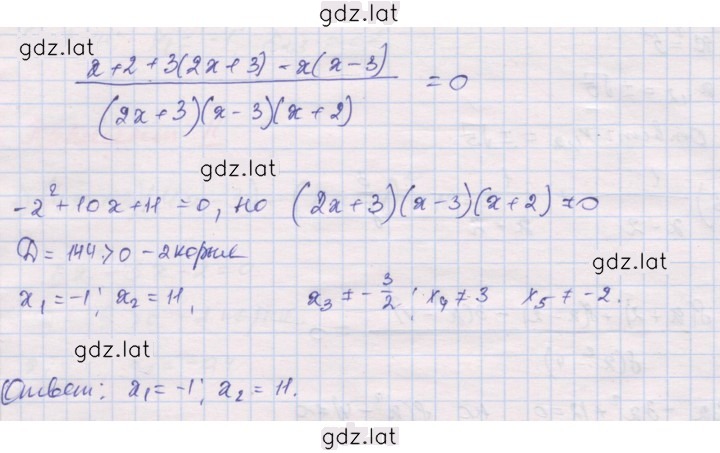 gdz.lat
gdz.lat
x+2+3(2x+3)-x(x-3)
(2x+3)(x-3)(x+2)
=0
gdz.lat
-2²+10x+11=0, но (2x+3)(x-3)(x+2)≠0
D=144>0-2 корня
gdz.lat
x₁=-1; x₂=11, x₃≠-3/2; x₄≠3 x₅≠-2.
gdz.lat
Ответ: x₁=-1; x₂=11.
gdz.lat